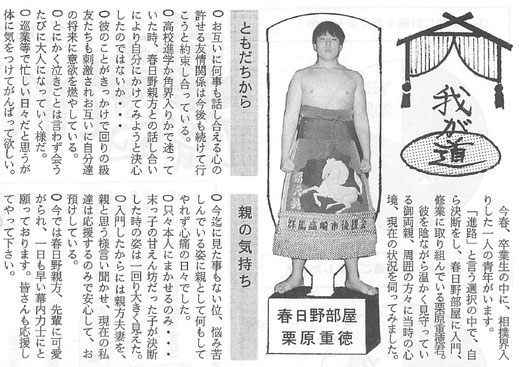 我が道
今春、卒業生の中に、相撲界入
りした一人の青年がいます。
「進路」と言う選択の中で、自
ら決断をし、春日野部屋に入門、
修業に取り組んでいる栗原重徳君。
彼を陰ながら温かく見守ってい
る御両親、周囲の方々に当時の心
境、現在の状況を伺ってみました。
群馬高崎市後援会
春日野部屋
栗原重徳
ともだちから
○お互いに何事も話し合える心の
許せる友情関係は今後も続けて行
こうと約束し合っている。
○高校進学か角界入りかで迷って
いた時、春日野親方との話し合い
により自分にかけてみようと決心
したのではないか・・・
○彼のことがきっかけで回りの級
友たちも刺激されお互いに自分達
の将来に意欲を燃やしている。
○とにかく泣きごとは言わず会う
たびに大人になっていく様だ。
○巡業等で忙しい日々だと思うが
体に気をつけてがんばって欲しい。
親の気持ち
○今迄に見た事もない位、悩み苦
しんでいる姿に親として何もして
やれず心痛の日々でした。
○只々本人にまかせるのみ・・・
末っ子の甘えん坊だった子が決断
した時の姿は一回り大きく見えた。
○入門したからには親方夫妻を、
親と思う様言い聞かせ、現在の私
達は応援するのみで安心して、お
預けしている。
○今では春日野親方、先輩に可愛
がられ、一日も早い幕内力士にと
願っております。皆さんも応援し
てやって下さい。